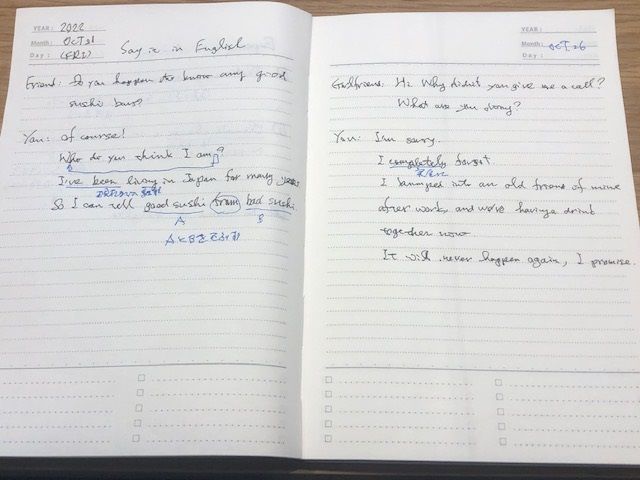 YEAR: 2022
Month: Oct 21
Day: (FRI)
Say it in English
Friend: Do you happen to know any good
sushi bars?
You: Of course!
Who do you think I am?
I've been living in Japan for many years
So I can tell good sushi from bad sushi.
A B
AとBを
YEAR:
Month: OCT 26
Day:
Girlfriend: Hi. Why didn't you give me a call?
What are you doing?
You: I'm sorry.
I completely forgot.
I bumped into an old friend of mine
after work and we're having a drink
together now
It will never happen again, I promise.